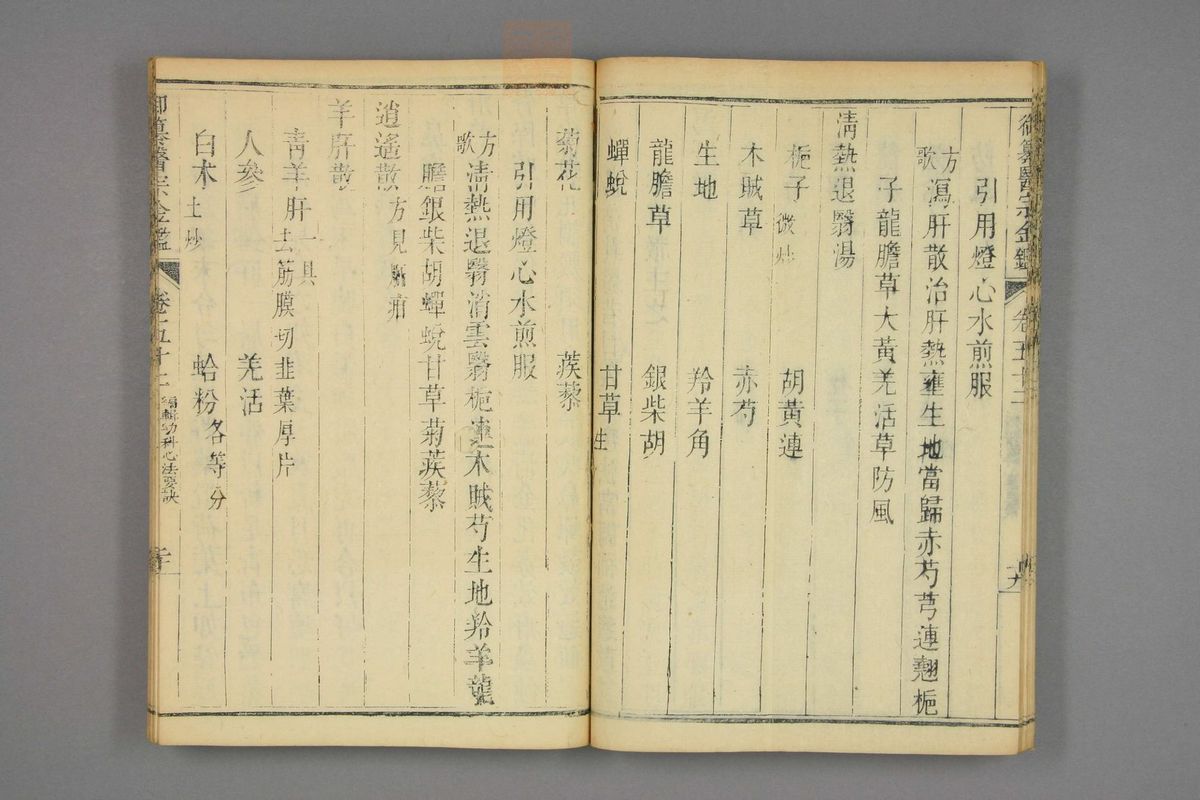 御纂醫宗金鑑
卷五十二
引用燈心水煎服
方歌
瀉肝散治肝熱壅生地當歸赤芍芎連翹梔
子龍膽草大黃羌活草防風
清熱退翳湯
梔子 微炒 胡黃連
木賊草 赤芍
生地 羚羊角
龍膽草 銀柴胡
蟬蛻 甘草 生
菊花 蒺藜
引用燈心水煎服
方歌
清熱退翳消雲翳梔連木賊芍生地羚羊龍
膽銀柴胡蟬蛻甘草菊蒺藜
逍遙散 方見
羊肝散
青羊肝 一具
去筋膜切韭葉厚片
人參 羌活
白朮 土炒 蛤粉 各等分
御纂醫宗金鑑
卷五十二
編輯幼科心法要訣